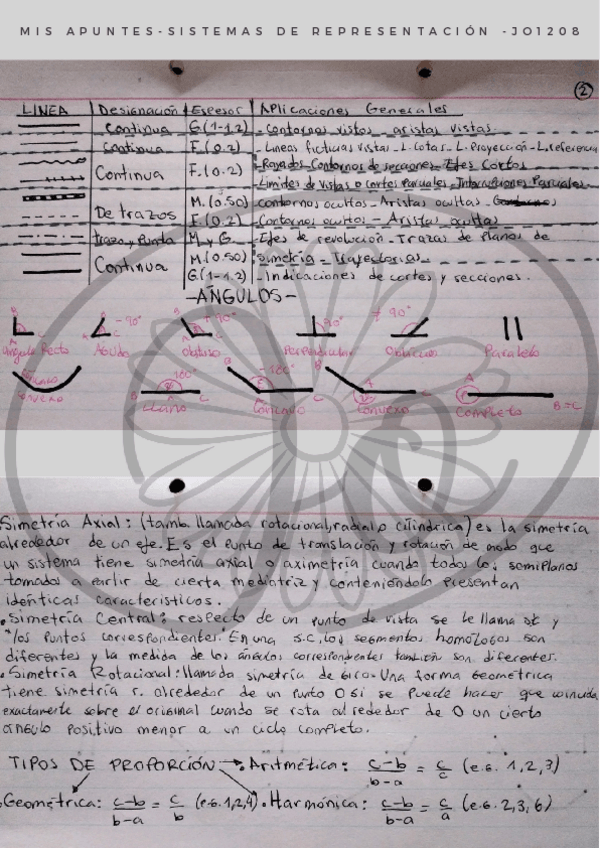 MIS APUNTES-SISTEMAS DE REPRESENTACIÓN -JO1208
2
LINEA Designación Espesor Aplicaciones Generales
Continua G(1-1.2) -Contornos vistos aristas vistas.
Continua F.(0.2) -Lineas ficticias vistas-L.Cotas-L.Proyección-L.referencia
Continua F.(0.2) -Rayados-Contornos de secciones-Ejes Cortos
-Limites de vistas o cortes parciales-Interrupciones Parciales-
De trazos M.(0.50) contornos ocultos-Aristas ocultas-
F.(0.2) -Contornos ocultos-Aristas ocultas
Trazo y Punto M y G -Ejes de revolución-Trazas de Planos de
Continua M(0.50) simetría-Trayectorias.
G(1-1.2) -Indicaciones de cortes y secciones.
-ÁNGULOS-
B -90° +90° 90° ≠ 90°
Angulo Recto Agudo Obtuso Perpendicular Oblicuo Paralelo
180° -180°
B C B C A B=C
Llano Concavo Convexo Completo
Simetría Axial: (tamb. llamada rotacional, radial o cilíndrica) es la simetría
alrededor de un eje. Es el punto de translación y rotación de modo que
un sistema tiene simetría axial o aximetría cuando todos los semiplanos
tomados a partir de cierta mediatriz y conteniéndolo presentan
idénticas características.
•Simetría Central: respecto de un punto de vista se le llama sc y
"los puntos correspondientes". En una s.c, los segmentos homólogos son
diferentes y la medida de los ángulos correspondientes también son diferentes.
•Simetría Rotacional: llamada simetría de giro. Una forma geométrica
tiene simetría r. alrededor de un punto O si se puede hacer que coincida
exactamente sobre el original cuando se rota alrededor de O un cierto
ángulo positivo menor a un ciclo completo.
TIPOS DE PROPORCIÓN → •Aritmética: c-b/b-a = c/c (e.g. 1,2,3)
•Geométrica: c-b/b-a = c/b (e.g. 1,2,4) •Harmónica: c-b/b-a = c/a (e.g. 2,3,6)